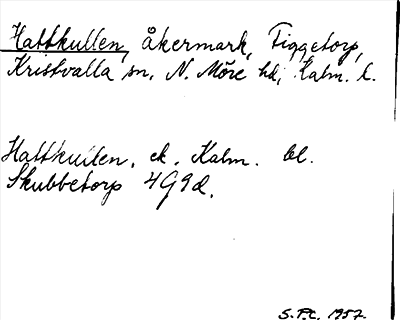 Hattkullen, åkermark, Tiggetorp,
Kristvalla sn, N. Möre hd, Kalm. l.
Hattkullen. ek. Kalm. bl.
Skubbetorp 4G9d.
S.F.C. 1957.